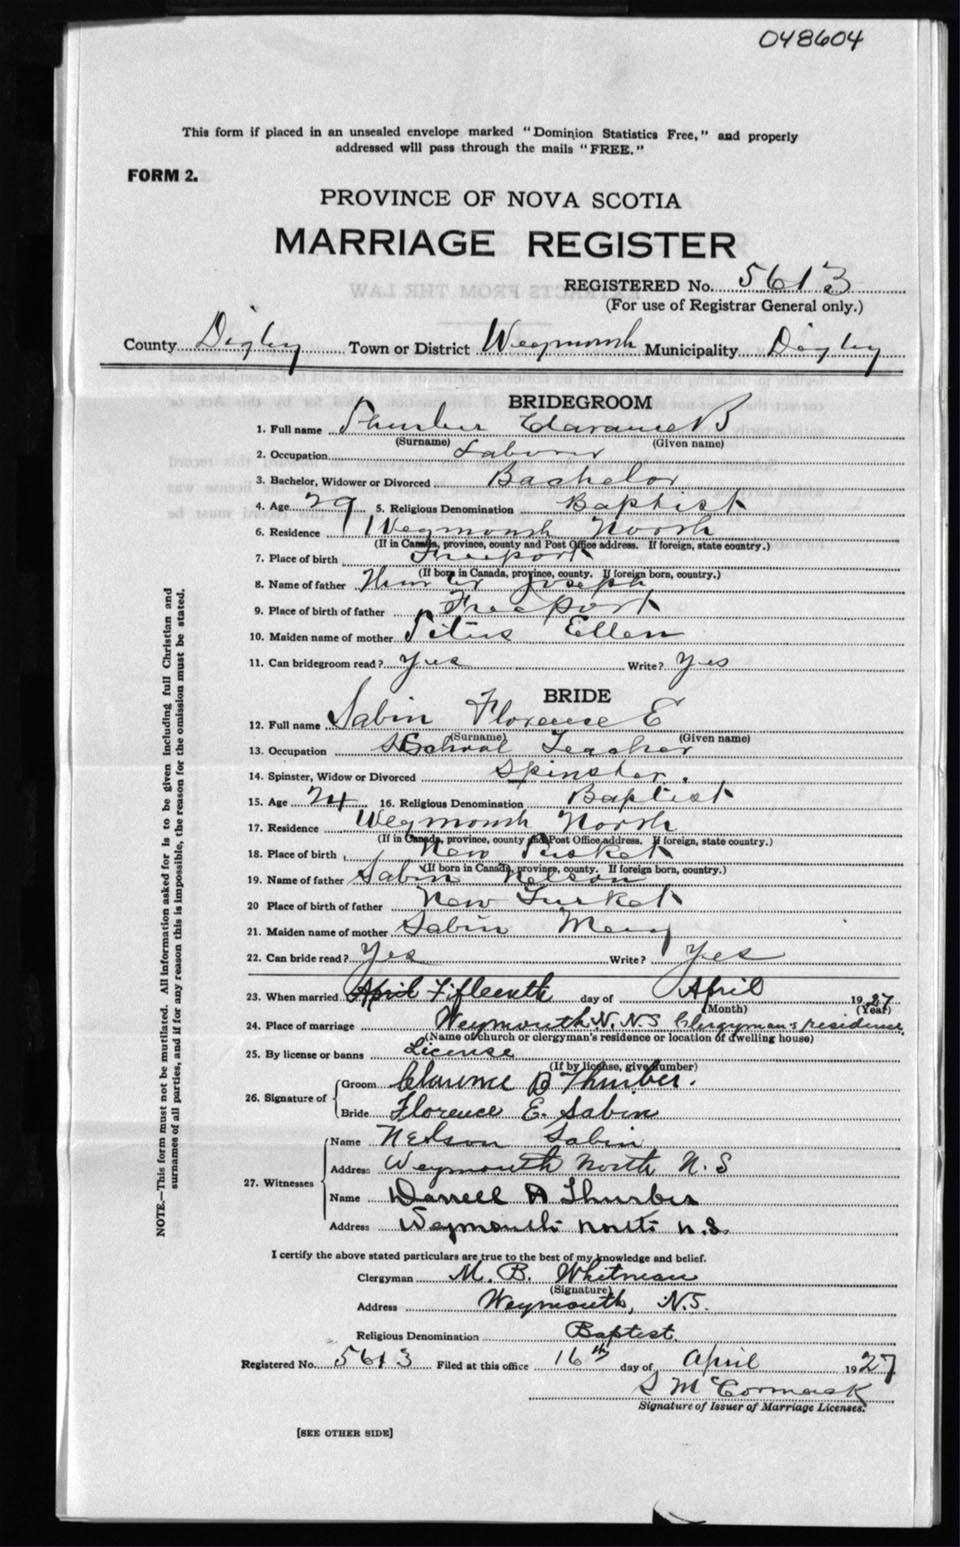 048604
This form if placed in an unsealed envelope marked "Dominion Statistics Free," and properly
addressed will pass through the mails "FREE."
FORM 2.
PROVINCE OF NOVA SCOTIA
MARRIAGE REGISTER
REGISTERED No. 5613
(For use of Registrar General only.)
County Digby Town or District Weymouth Municipality Digby
BRIDEGROOM
1. Full name Thurber Clarance B
(Surname) (Given name)
2. Occupation Laborer
3. Bachelor, Widower or Divorced Bachelor
4. Age 29 5. Religious Denomination Baptist
6. Residence Weymouth North
(If in Canada, province, county and Post Office address. If foreign, state country.)
7. Place of birth Freeport
(If born in Canada, province, county. If foreign born, country.)
8. Name of father Thurber Joseph
9. Place of birth of father Freeport
10. Maiden name of mother Titus Ellen
11. Can bridegroom read? Yes Write? Yes
BRIDE
12. Full name Sabin Florence E
(Surname) (Given name)
13. Occupation School Teacher
14. Spinster, Widow or Divorced Spinster.
15. Age 24 16. Religious Denomination Baptist
17. Residence Weymouth North
(If in Canada, province, county and Post Office address. If foreign, state country.)
18. Place of birth New Tusket
(If born in Canada, province, county. If foreign born, country.)
19. Name of father Sabin Nelson
20 Place of birth of father New Tusket
21. Maiden name of mother Sabin Mary
22. Can bride read? Yes Write? Yes
23. When married April Fifteenth day of April 1927
(Month) (Year)
24. Place of marriage Weymouth N. N.S Clergyman's residence
(Name of church or clergyman's residence or location of dwelling house)
25. By license or banns License
(If by license, give number)
26. Signature of Groom Clarence B Thurber.
Bride Florence E. Sabin
27. Witnesses Name Nelson Sabin
Address Weymouth North N.S
Name Darrell A Thurber
Address Weymouth North N.S.
I certify the above stated particulars are true to the best of my knowledge and belief.
Clergyman M. B. Whitman
(Signature)
Address Weymouth, N.S.
Religious Denomination Baptist.
Registered No. 5613 Filed at this office 16th day of April 1927
S McCormack
Signature of Issuer of Marriage Licenses.
[SEE OTHER SIDE]
NOTE.—This form must not be mutilated. All information asked for is to be given including full Christian and
surnames of all parties, and if for any reason this is impossible, the reason for the omission must be stated.